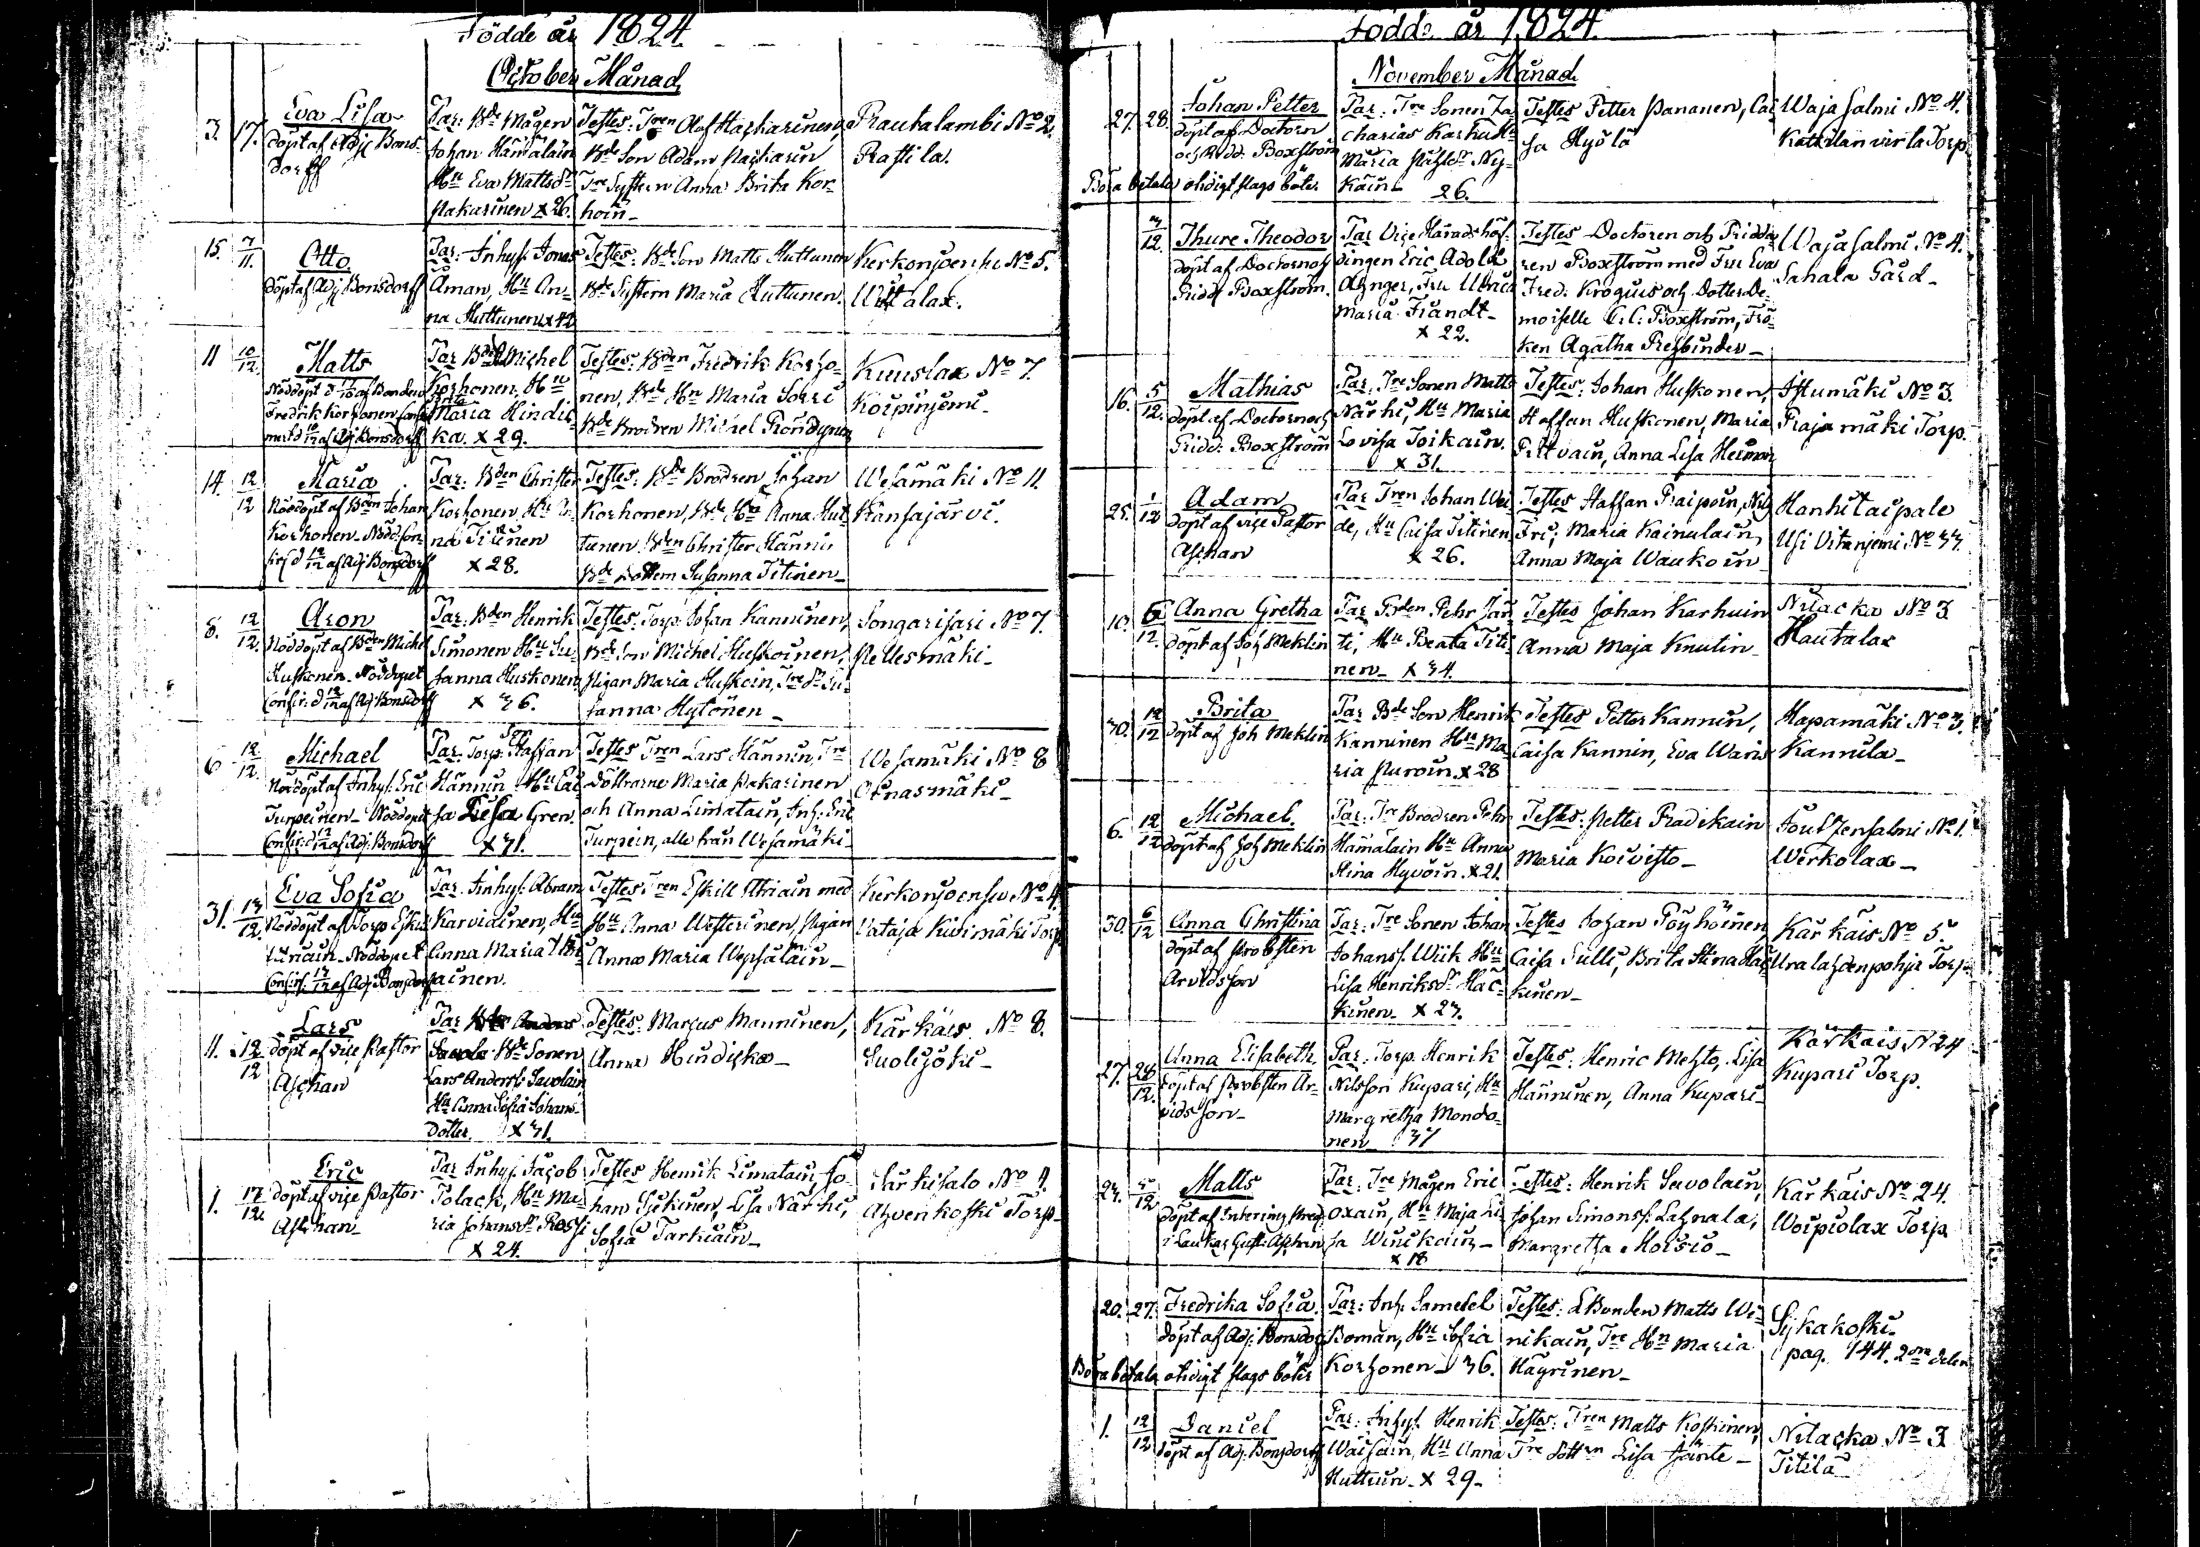 Födde år 1824.
October Månad
3. 17. Eva Lisa
döpt af Adj. Bons-
dorff
Par: Bde Mågen
Johan Hämäläin
Hu Eva Mattsdr
Pakarinen x 26.
Testes: Tren Olof Hakkarinen,
Bde Son Adam
Tre Systern Anna Brita Kor-
hoin
Rautalambi No 2.
Rassila.
15. 7/11. Otto
döpt af Adj Bonsdorff
Par: Inhys. Jonas
Åman, Hu An-
na Huttunen x 42
Testes: Bde Son Matts Huttunen
Bde Systern Maria Huttunen.
Kerkonjoensu No 5.
11 10/12. Matts
Nöddöpt af Bonden
Fredrik Korhonen
af Adj Bonsdorff
Par Bden Michel
Korhonen, Hu
Brita
Maria Hindic-
ka. x 29.
Testes: Bden Fredrik Korho-
nen, Bde Hu Maria Sorri
Bde Brodren Michel Röndynen
Kuuslax No 7.
Koipinjemi
14. 12/12 Maria
Nöddöpt af Bden Johan
Korhonen. Nöddp. con-
fir. d 12/12 af Adj Bonsdorff
Par: Bden Christer
Korhonen Hu An-
na Titinen
x 28.
Testes: Bde Brodren Johan
Korhonen, Bde Hu Anna Hut
tunen Bden Christer Hännin
Bde Dottern Susanna Titinen
Wesamäki No 11.
Kansajärvi.
8. 12/12. Aron
Nöddöpt af Bden Michel
Huskonen. Nöddopet
Confir. d 12/12 af Adj Bonsdorff
Par: Bden Henrik
Simonen Hu Su-
sanna Huskonen
x 36.
Testes: Torp. Johan Kanninen,
Bde Son Michel Huskoinen,
Pigan Maria Huskoin, Tre Dr Su-
sanna Hytönen
Songarisari No 7.
Pellesmäki
6 12/12. Michael
Nöddöpt af Inhys. Eric
Turpeinen. Nöddopet
Confir. d 12/12 af Adj. Bonsdorff
Par: Torp. Son Staffan
Hännin Hu Cai-
sa Lisa Gren.
x 31.
Testes Tren Lars Hännin, Tre
döttrarne Maria Pakarinen
och Anna Limatain, Inh. Eric
Turpein, alle från Wesamäki
Wesamäki No 8
Oinasmäki
31. 13/12. Eva Sofia
Nöddöpt af Torp Eskil
Nöddopet
Confirs. 13/12 af Adj Bonsdorff
Par. Inhys: Abram
Karviainen, Hu
Anna Maria
ainen.
Testes Tren Eskill Atriain med
Hu Anna Westerinen, Pigan
Anna Maria Wepsäläin
Kerkonjoensu No 4.
Vataja Kivimäki Torp
4. 12/12 Lars
döpt af vice Pastor
Aschan
Par
Bde Sonen
Lars Anderss: Savolain
Hu Anna Sofia Johans-
dotter x 31.
Testes: Marcus Manninen,
Anna Hindicka
Kärkäis No 8.
Suolijöki
1. 17/12. Eric
döpt af vice Pastor
Aschan
Par Inhys. Jacob
Polack, Hu Ma-
ria Johansdr Rossi
x 24.
Testes Henrik Limatain, Jo-
han Tjukinen, Lisa Närhi,
Sofia Tarkiain
Särkisalo No 4.
Ahvenkoski Torp
Födde år 1824.
November Månad
27. 28. Johan Petter
döpt af Doctorn
och Ridd. Boxström
Böra betala olidigt slags böter
Par: Tre Sonen Za-
charias Karhu Hu
Maria Ny-
käin 26.
Testes Petter Pananen, Cai
sa Hyölä
Wajasalmi No 4.
Torp.
3/12. Thure Theodor
döpt af Doctorn och
Ridd Boxström.
Par Vice Häradshöf-
dingen Eric Adolf
Ahnger, Fru Ulrica
Maria Frandt
x 22.
Testes Doctoren och Ridda-
ren Boxström med Fru Eva
Fred. Krogius och Dotter De-
moiselle C.C. Boxström, Frö-
ken Agatha Rehbinder
Wajasalmi No 4.
Sahala Gård
16. 5/12. Mathias
döpt af Doctorn och
Ridd. Boxström
Par: Tre Sonen Matts
Närhi, Hu Maria
Lovisa Toikain.
x 31.
Testes: Johan Huskonen,
Staffan Huskonen, Maria
Pitkain, Anna Lisa Heimon
Istumäki No 3.
Rajamäki Torp.
25. 1/12 Adam
döpt af vice Pastor
Aschan
Par Tren Johan Wei
de, Hu Caisa Titinen
x 26.
Testes Staffan Raipoin, Nils
Fri, Maria Kainulain,
Anna Maja Waukoin
Hanhitaipale
Usi Vitanjemi No 33.
10. 6/12. Anna Gretha
döpt af Joh Meklin
Par Bden Pehr Jän
ti, Hu Beata Titi-
nen x 34.
Testes Johan Karhuin
Anna Maja Knutin
Nilacka No 3
Hautalax
30. 12/12 Brita
döpt af Joh Meklin
Par Bde Son Henrik
Kanninen Hu Ma-
ria Puroin x 28
Testes Petter Kannin,
Caisa Kannin, Eva Waris
Hapamäki No 3.
Kannila
6. 12/12 Michael.
döpt af Joh Meklin
Par: Tre Brodren Pehr
Hämäläin Hu Anna
Stina Hyvöin x 21.
Testes: Petter Radikain
Maria Koivisto
Joutzensalmi No 1.
Wirkolax
30 6/12 Anna Christina
döpt af Probsten
Arvidsson
Par: Tre Sonen Johan
Johanss. Wiik Hu
Lisa Henriksdr Hac-
kinen x 23.
Testes Johan Pöyhöinen,
Caisa Sulli, Brita Stina Hac
kinen
Kärkäis No 5.
Uralahdenpohja Torp.
27. 28/12. Anna Elisabeth
döpt af Probsten Ar-
vidsson
Par: Torp. Henrik
Nilsson Kupari, Hu
Margretha Mondo-
nen 31
Testes: Henric Mehto, Lisa
Hänninen, Anna Kupari
Kärkäis N 24
Kupari Torp.
23. 5/12 Matts
döpt af
i Laukas Gust. Aschan
Par: Tre Mågen Eric
Oxain, Hu Maja Li-
sa Winikain
x 18
Testes: Henrik Savolain,
Johan Simonss: Lahnala,
Margretha Moisio
Kärkäis No 24.
Woipiolax Torp
20. 27. Fredrika Sofia.
döpt af Adj. Bonsdorff
Böra betala olidigt slags böter
Par: Inh. Samuel
Boman, Hu Sofia
Korhonen 36.
Testes: LBonden Matts Wi-
nikain, Tre Hu Maria
Häyrinen
Sykakoski
pag. 144. 2dra delen
1. 12/12 Daniel
döpt af Adj. Bonsdorff
Par: Inhys. Henrik
Wäisäin, Hu Anna
Huttun x 29
Testes: Tren Matts Koskinen,
Tre Dottern Lisa Jänte
Nilacka No 3
Titilä